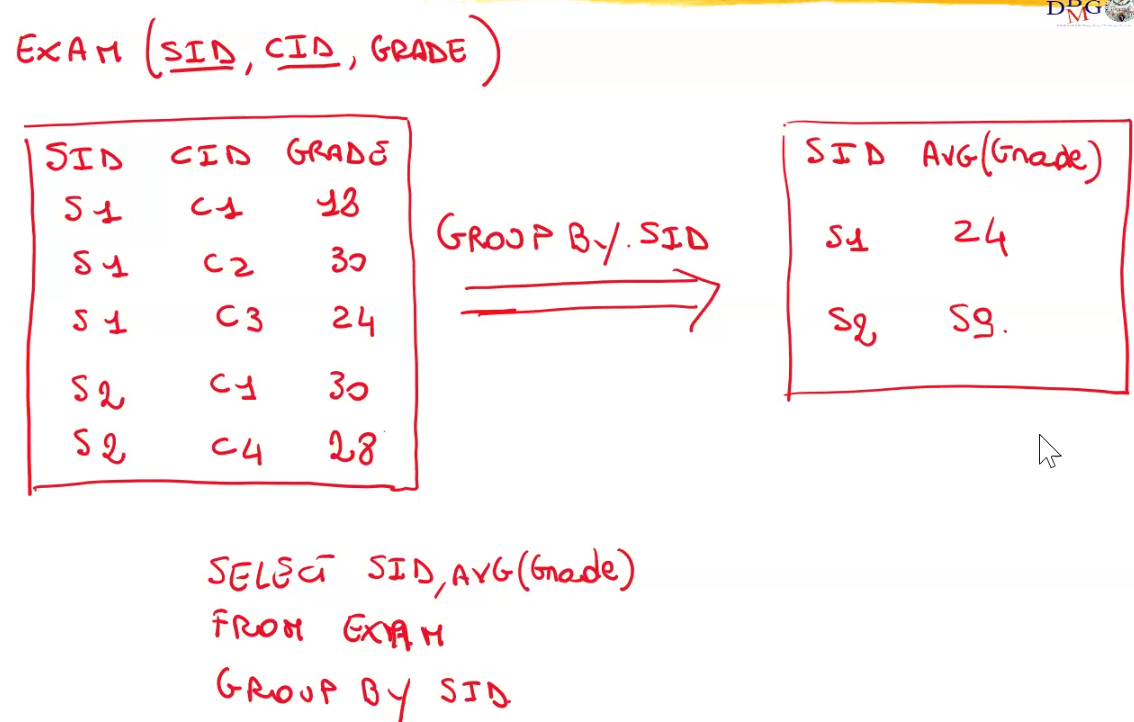 DBMG
EXAM (SID, CID, GRADE)
SID CID GRADE
S1 C1 18
S1 C2 30
S1 C3 24
S2 C1 30
S2 C4 28
GROUP BY SID
SID AVG(Grade)
S1 24
S2 S9.
SELECT SID, AVG(Grade)
FROM EXAM
GROUP BY SID